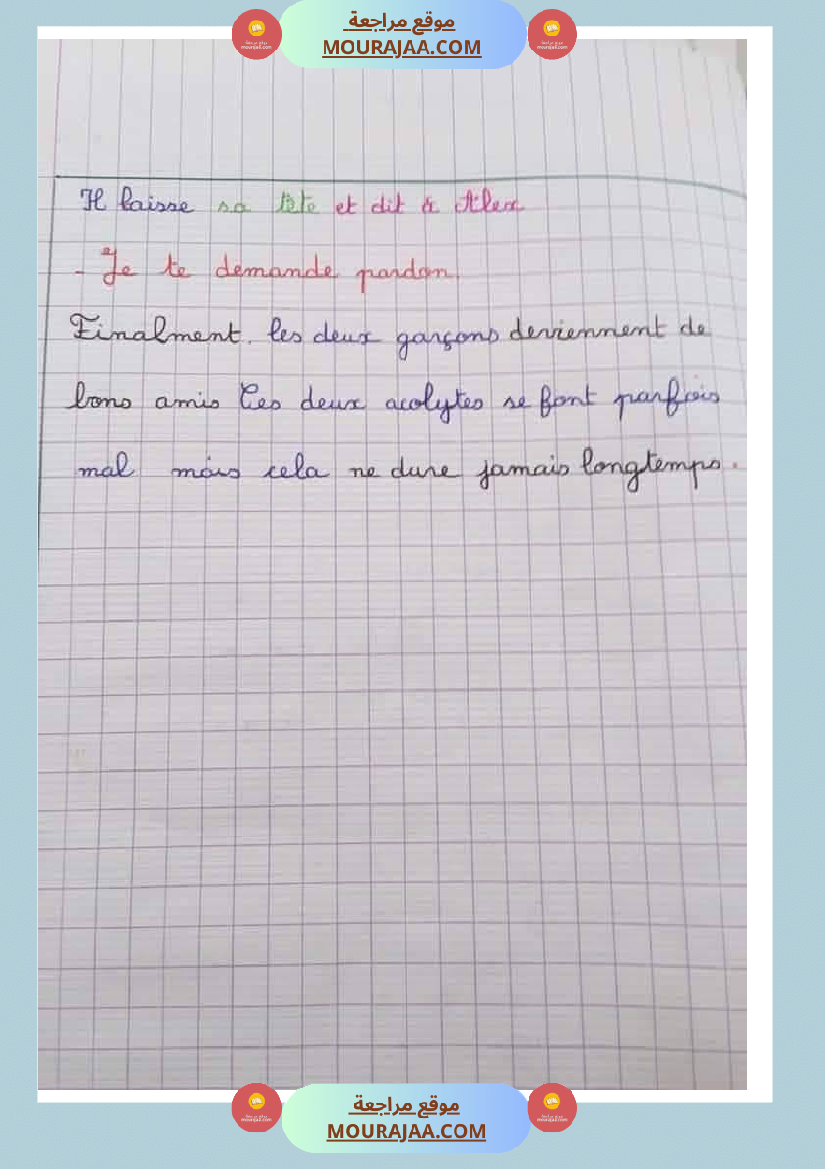 موقع مراجعة
MOURAJAA.COM
Il baisse sa tête et dit à Alex
- Je te demande pardon.
Finalment, les deux garçons deviennent de
bons amis Ces deux acolytes se font parfois
mal mais cela ne dure jamais longtemps.
موقع مراجعة
MOURAJAA.COM